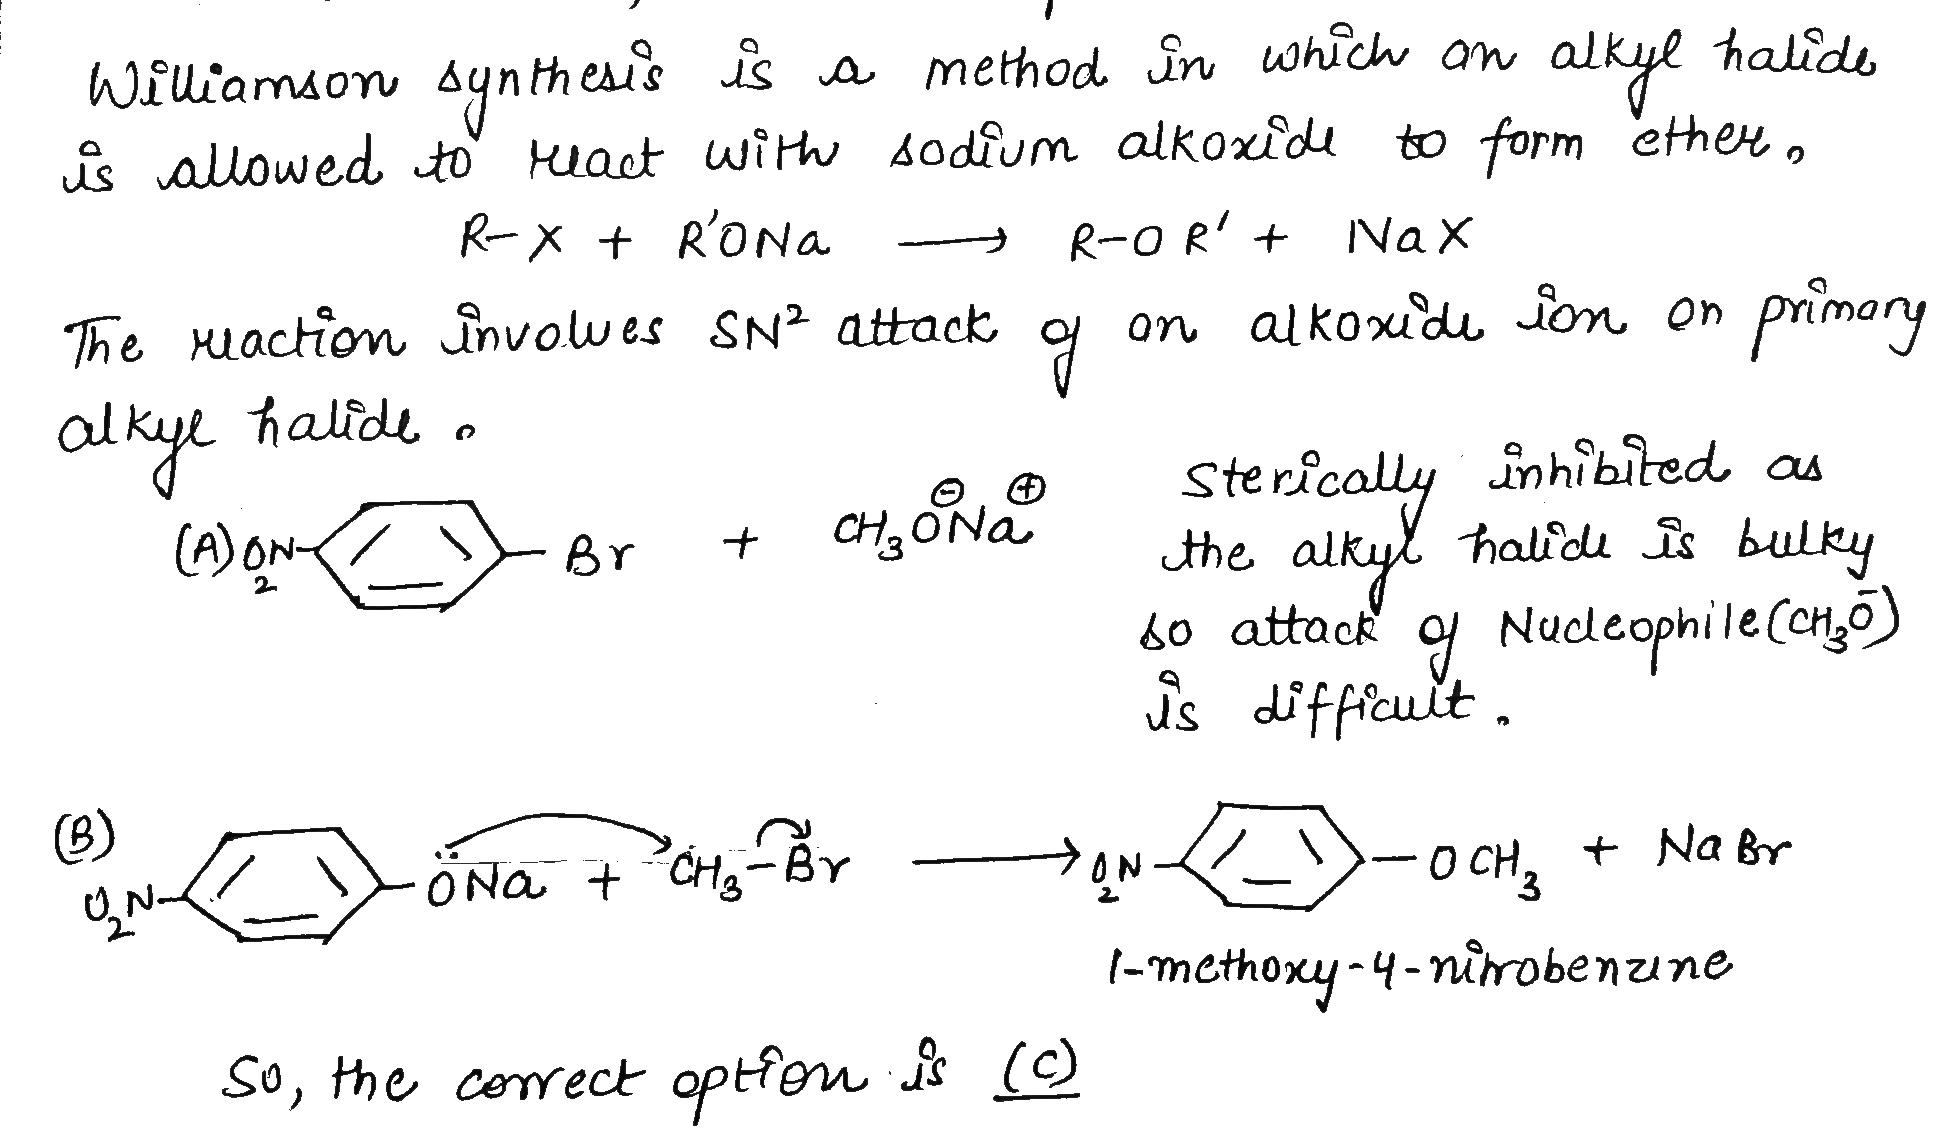 Williamson synthesis is a method in which an alkyl halide
is allowed to react with sodium alkoxide to form ether.
R-X + R'ONa → R-OR' + NaX
The reaction involves SN² attack of an alkoxide ion on primary
alkyl halide.
(A) O₂N- -Br + CH₃O⊖Na⊕
Sterically inhibited as
the alkyl halide is bulky
so attack of Nucleophile(CH₃Ō)
is difficult.
(B) O₂N- -ÖNa + CH₃-Br → O₂N- -OCH₃ + NaBr
1-methoxy-4-nitrobenzene
So, the correct option is (C)